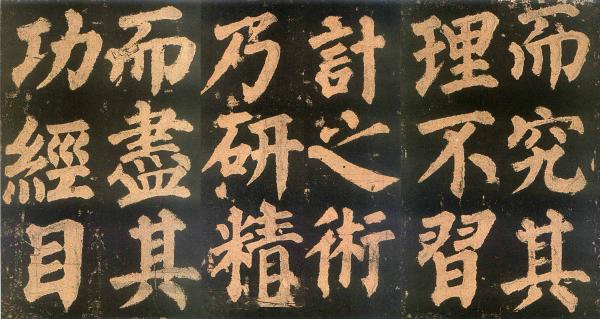 而究其
理不習
計之術
乃研精
而盡其
功經目